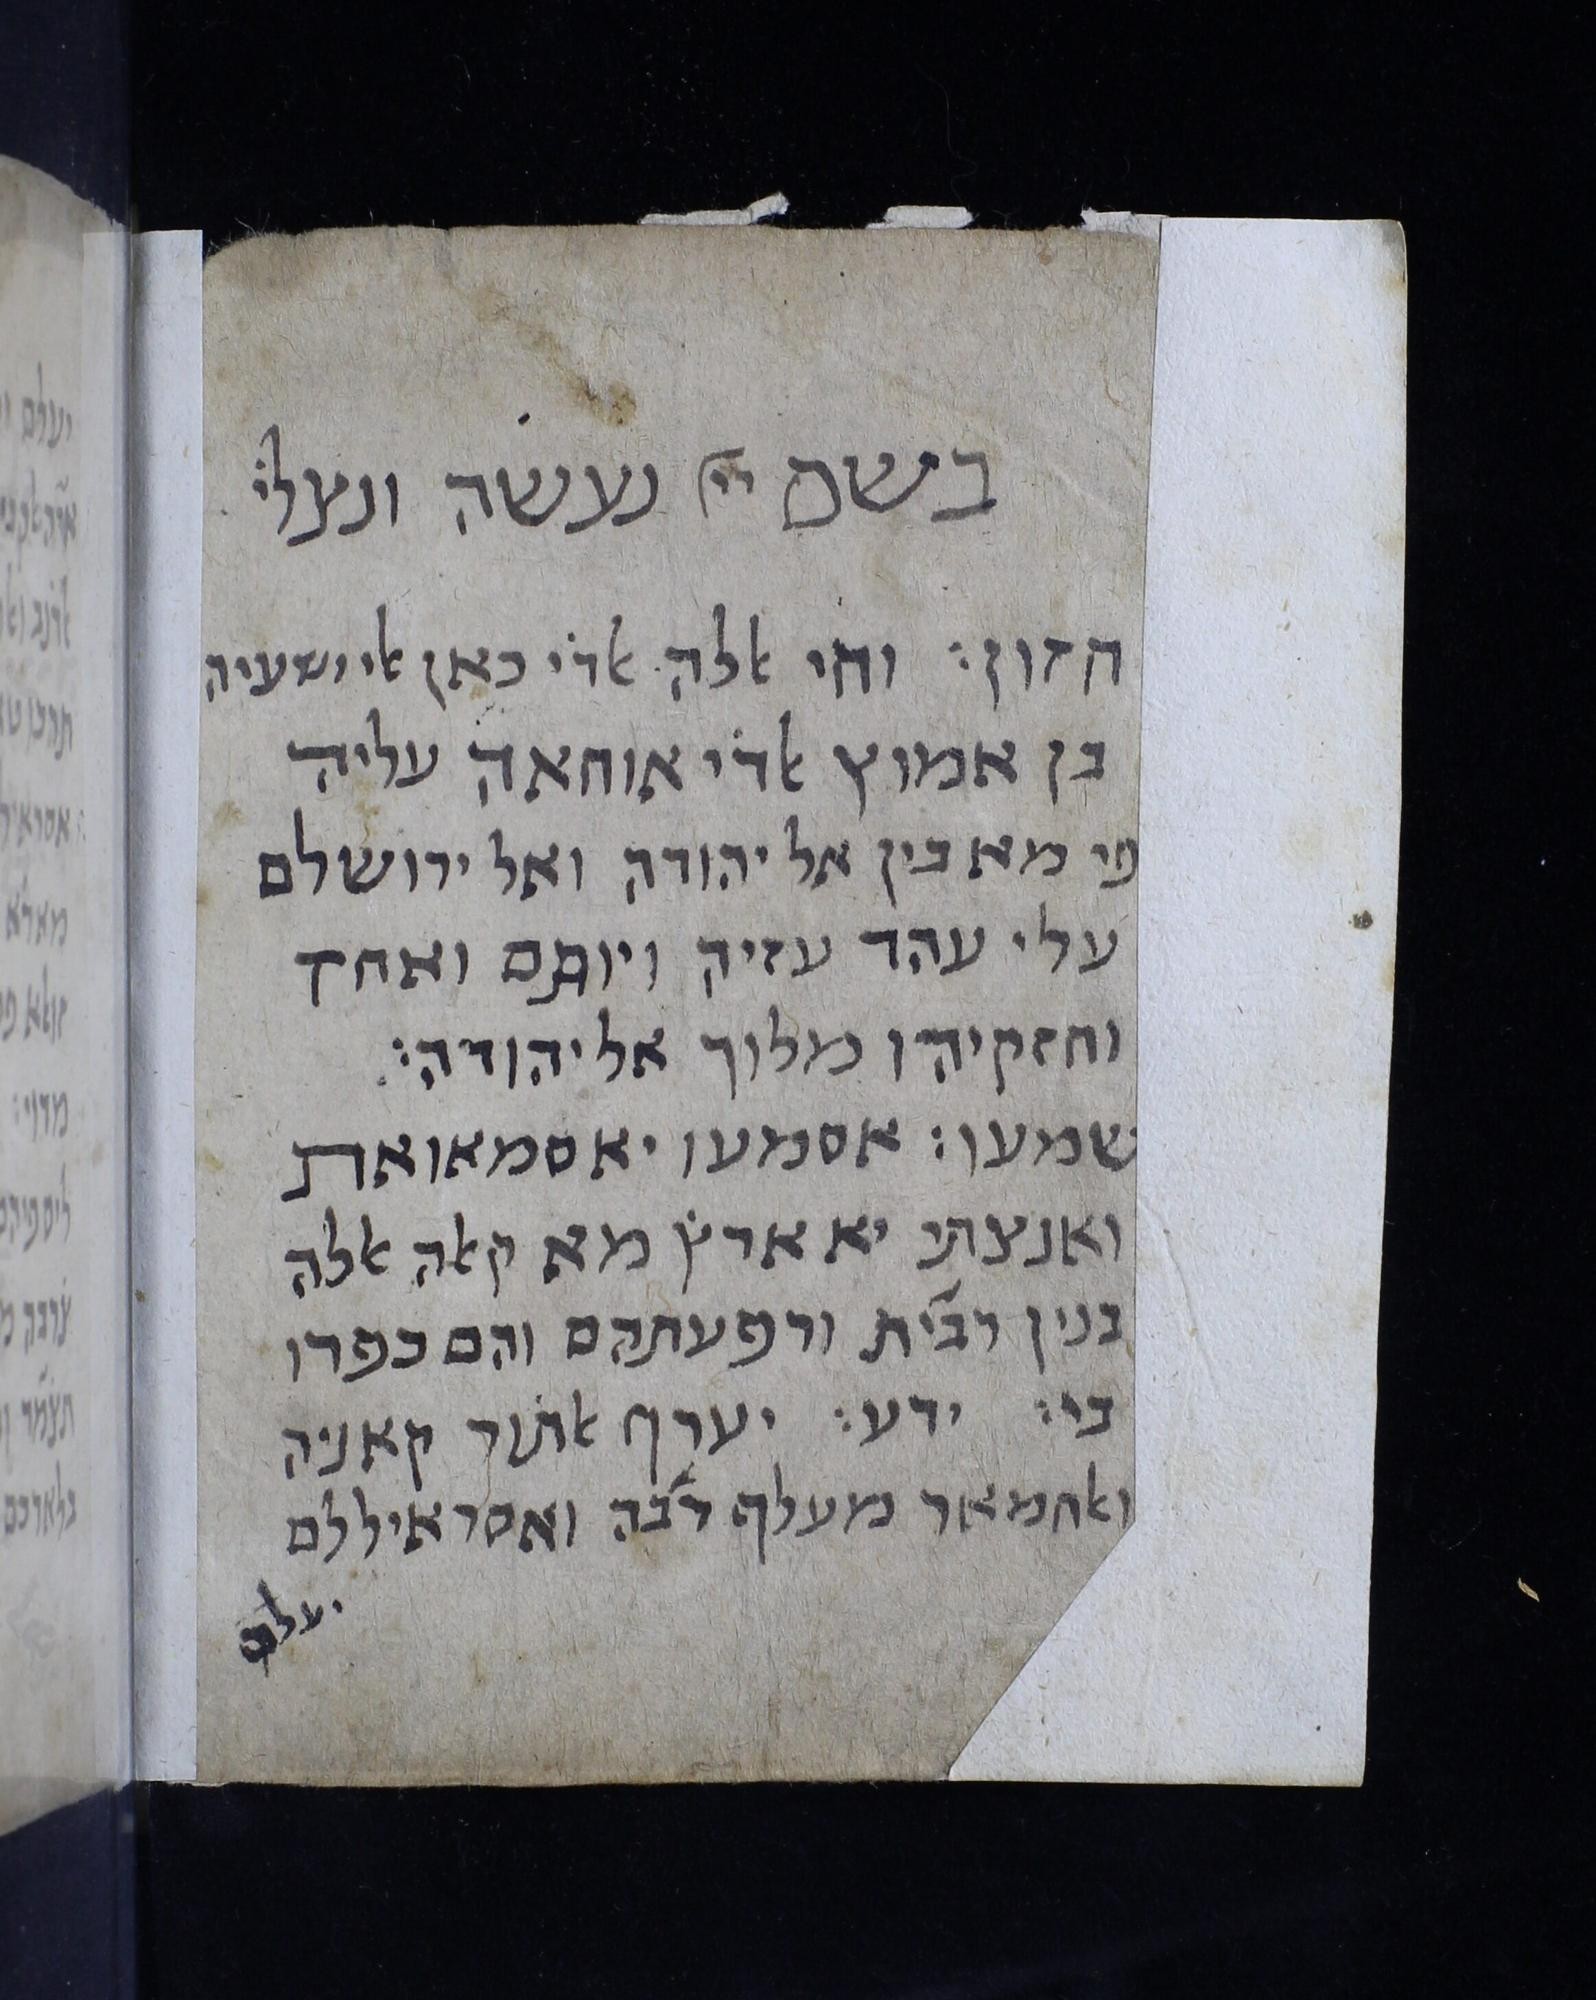 בשם ייי נעשה ונצל׃
חזון׃ וחי אלה אלדׄי כאן אלי ישעיה
בן אמוץ אלדׄי אוחאהׄ עליה
פי מא בין אל יהודה ואל ירושלם
עלי עהד עזיה ויותם ואחז
וחזקיהו מלוך אל יהודה׃
שמעו׃ אסמעו יא סמאואת
ואנצתי יא ארץׄ מא קאלה אללה
בנין רבית ורפעתהם והם כפרו
בי׃ ידע׃ יערף אלתׄור קאניה
ואלחמאר מעלף רבה ואסראיל לם
יעלם